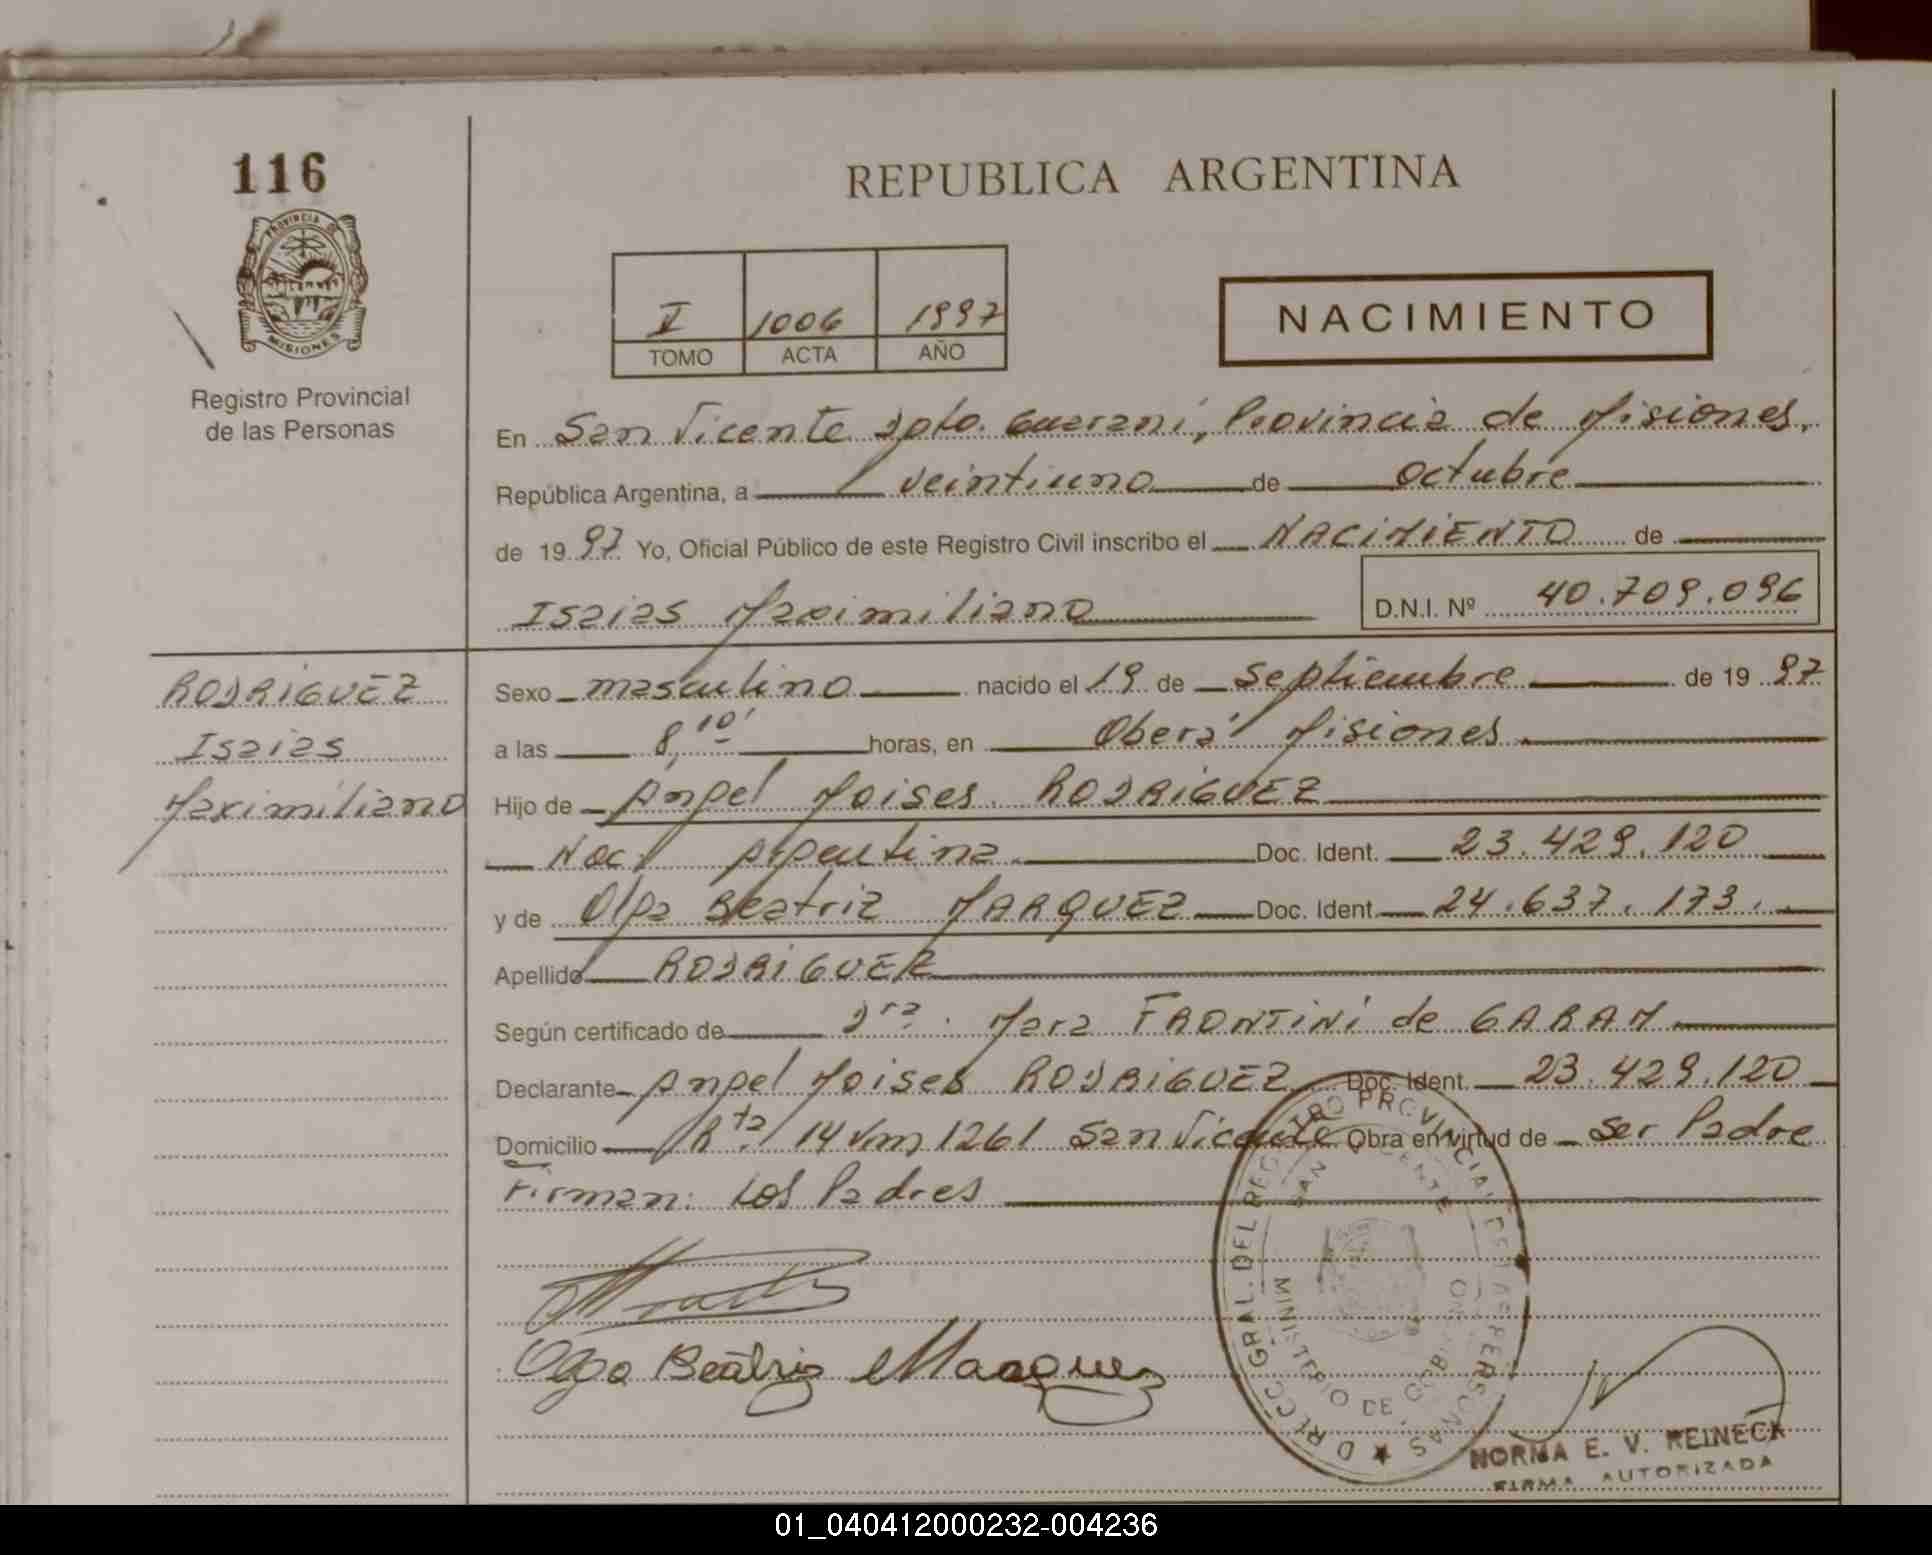 116
PROVINCIA DE
MISIONES
Registro Provincial
de las Personas
REPUBLICA ARGENTINA
V 1006 1997
TOMO ACTA AÑO
NACIMIENTO
En San Vicente Dpto. Guaraní, Provincia de Misiones,
República Argentina, a veintiuno de octubre
de 19 97 Yo, Oficial Público de este Registro Civil inscribo el NACIMIENTO de
Isaias Maximiliano D.N.I. Nº 40.709.096
RODRIGUEZ
Isaias
Maximiliano
Sexo masculino nacido el 19 de Septiembre de 19 97
a las 8,10' horas, en Oberá Misiones
Hijo de Angel Moises RODRIGUEZ
Nac. Argentina Doc. Ident. 23.429.120
y de Olga Beatriz MARQUEZ Doc. Ident. 24.637.173.
Apellido RODRIGUEZ
Según certificado de Dra. Mara FRONTINI de GARAY
Declarante Angel Moises RODRIGUEZ Doc. Ident. 23.429.120
Domicilio Rta 14 Km 1261 San Vicente Obra en virtud de ser Padre
Firman: Los Padres
Olga Beatriz Marquez
DIRECC GRAL. DEL REGISTRO PROVINCIAL DE LAS PERSONAS
SAN VICENTE
MINISTERIO DE GOBIERNO
NORMA E. V. REINECK
FIRMA AUTORIZADA
01_040412000232-004236